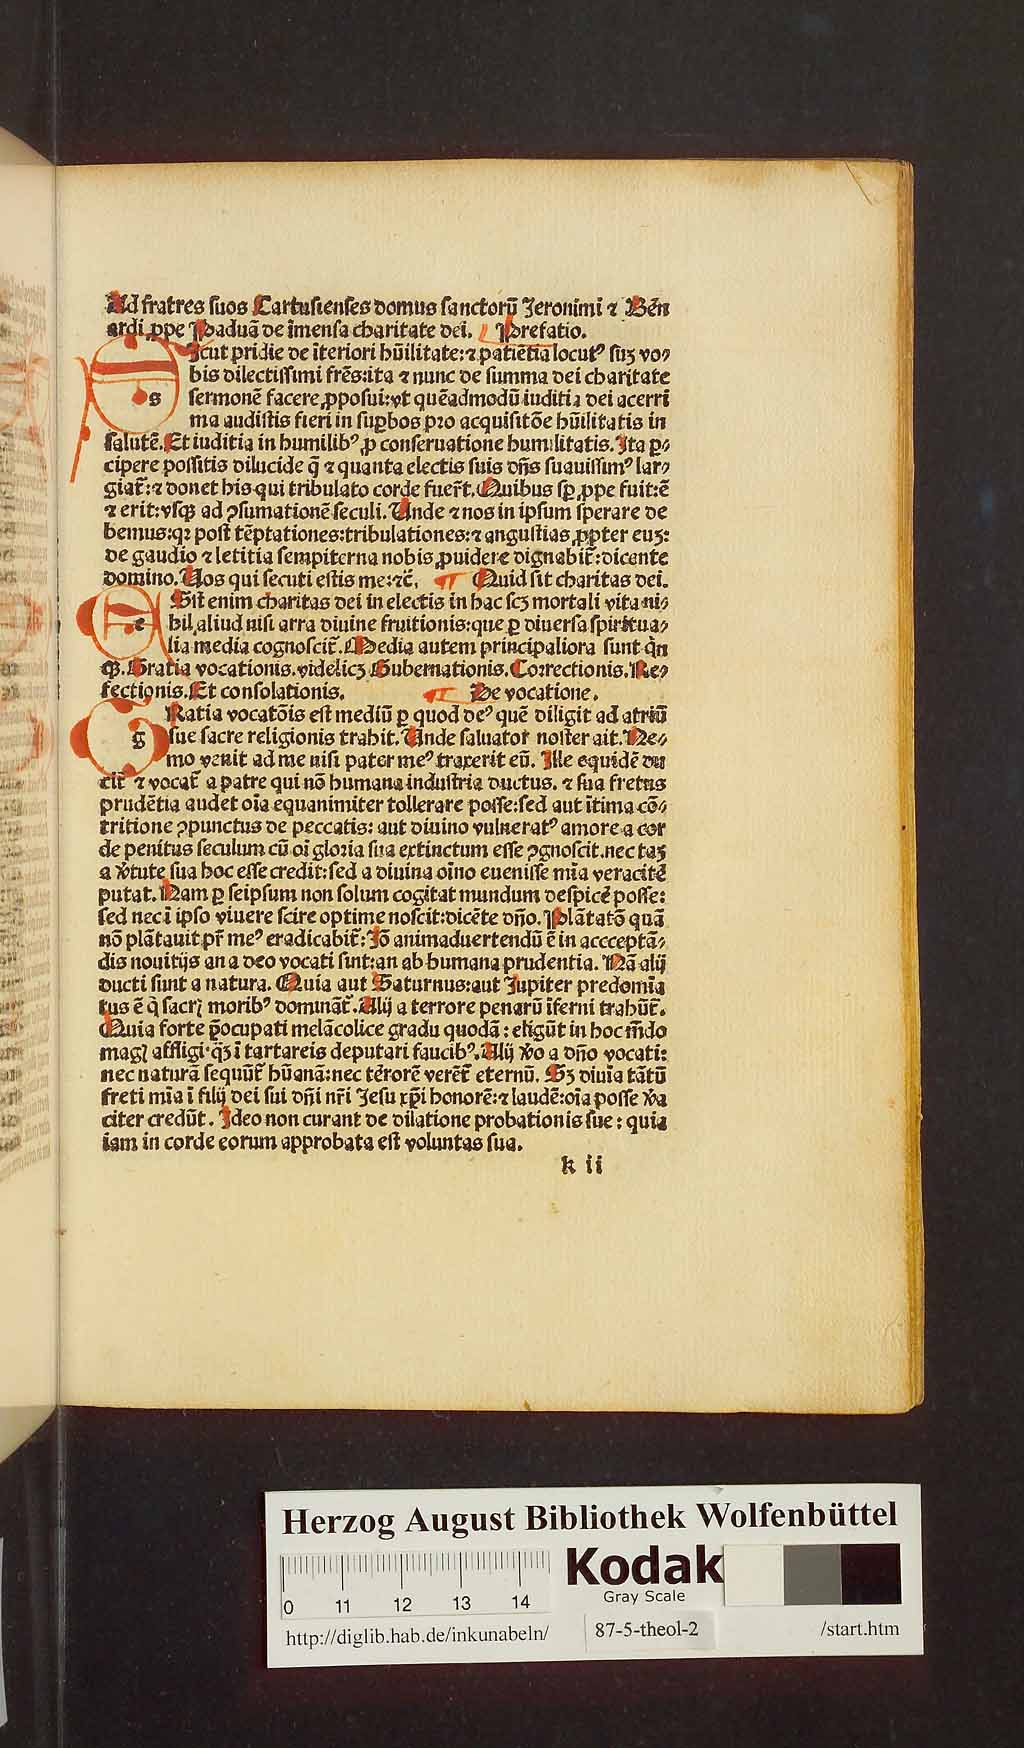 Ad fratres suos Cartusienses domus sanctorū Jeronimi ⁊ Bern̄
ardi ꝓpe Paduā de īmensa charitate dei. Prefatio.
sIcut pridie de īteriori hūilitate:⁊ patiētia locutꝰ suꝫ vo⸗
bis dilectissimi frēs:ita ⁊ nunc de summa dei charitate
sermonē facere ꝓposui:vt quēadmodū iuditia dei acerri
ma audistis fieri in suꝑbos pro acquisitōe hūilitatis in
salutē. Et iuditia in humilibꝰ ꝓ conseruatione humilitatis. Ita ꝑ⸗
cipere possitis dilucide q̄ ⁊ quanta electis suis dn̄s suauissimꝰ lar⸗
giat̄:⁊ donet his qui tribulato corde fuer̄t. Quibus sꝑ ꝓpe fuit:ē
⁊ erit:vsqꝫ ad ꝯsumationē seculi. Unde ⁊ nos in ipsum sperare de
bemus:qꝛ post tēptationes:tribulationes:⁊ angustias ꝓpter euꝫ:
de gaudio ⁊ letitia sempiterna nobis ꝓuidere dignabit̄:dicente
domino. Uos qui secuti estis me:⁊c̄. Quid sit charitas dei.
eSt enim charitas dei in electis in hac scꝫ mortali vita ni⸗
hil aliud nisi arra diuine fruitionis:que ꝑ diuersa spiritua⸗
lia media cognoscit̄. Media autem principaliora sunt q̇n
qꝫ. Gratia vocationis. videlicꝫ Gubernationis. Correctionis. Re⸗
fectionis. Et consolationis. De vocatione.
gRatia vocatōis est mediū ꝑ quod deꝰ quē diligit ad atriū
sue sacre religionis trahit. Unde saluator noster ait. Ne⸗
mo venit ad me nisi pater meꝰ traxerit eū. Ille equidē du
cit̄ ⁊ vocat̄ a patre qui nō humana industria ductus. ⁊ sua fretus
prudētia audet oīa equanimiter tollerare posse:sed aut ītima cō⸗
tritione ꝯpunctus de peccatis: aut diuino vulneratꝰ amore a cor
de penitus seculum cū oī gloria sua extinctum esse ꝯgnoscit. nec taꝫ
a v̄tute sua hoc esse credit:sed a diuina oīno euenisse mīa veracitē
putat. Nam ꝑ seipsum non solum cogitat mundum despicē posse:
sed nec ī ipso viuere scire optime noscit:dicēte dn̄o. Plātatō quā
nō plātauit pr̄ meꝰ eradicabit̄: Jō animaduertendū ē in accceptā⸗
dis nouitijs an a deo vocati sint:an ab humana prudentia. Nā alij
ducti sunt a natura. Quia aut Saturnus:aut Jupiter predomīa
tus ē q̇ sacrꝭ moribꝰ domināt̄. Alij a terrore penarū īferni trahūt̄.
Quia forte p̄ocupati melācolice gradu quodā: eligūt in hoc m̄do
magꝭ affligi q̄ꝫ ī tartareis deputari faucibꝰ. Alij v̄o a dn̄o vocati:
nec naturā sequūt̄ hūanā:nec tērorē verēt̄ eternū. Sꝫ diuīa tātū
freti mīa ī filij dei sui dn̄i nr̄i Jesu xp̄i honorē:⁊ laudē:oīa posse v̄a
citer credūt. Ideo non curant de dilatione probationis sue: quia
iam in corde eorum approbata est voluntas sua.
k ii
Herzog August Bibliothek Wolfenbüttel
Kodak
Gray Scale
0 11 12 13 14
http://diglib.hab.de/inkunabeln/ 87-5-theol-2 /start.htm